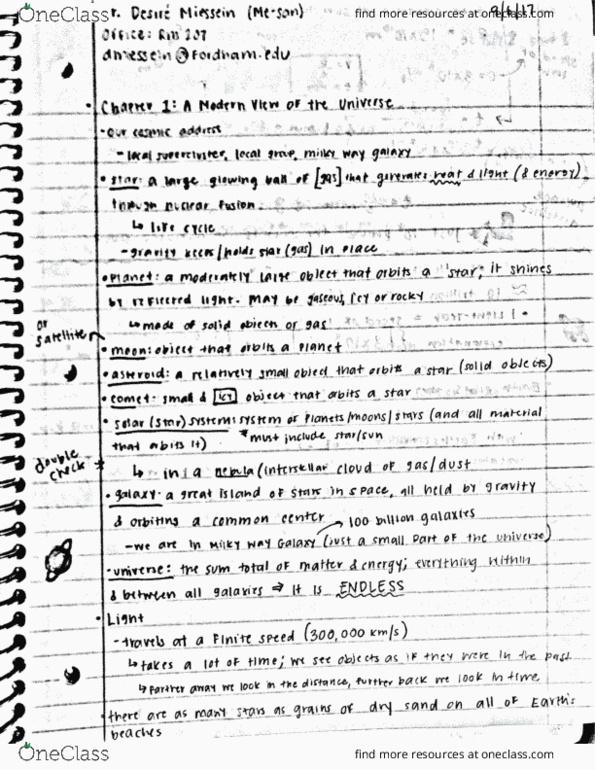 r. Desiré Miessein (Me-san)
9/6/17
find more resources at oneclass.com
OneClass
Office: Rm 207
dmessein@fordham.edu
• Chapter 1: A Modern View of the Universe
- our cosmic address
- local supercluster, local group, milky way galaxy
• star: a large glowing ball of [gas] that generates heat & light (& energy)
through nuclear fusion.
↳ life cycle
- gravity keeps/holds star (gas) in place
• Planet: a moderately large object that orbits a star; it shines
by reflected light. May be gaseous, icy or rocky
↳ made of solid objects or gas
or satellite
• moon: object that orbits a planet
• asteroid: a relatively small object that orbits a star (solid objects)
• comet: small & icy object that orbits a star
• solar (star) system: system of planets/moons/stars (and all material
that orbits it) *must include star/sun
double check *
↳ in a nebula (interstellar cloud of gas/dust
• galaxy: a great island of stars in space, all held by gravity
& orbiting a common center
100 billion galaxies
- we are in Milky Way Galaxy (just a small part of the universe)
• universe: the sum total of matter & energy; everything within
& between all galaxies ⇒ it is ENDLESS
• Light
- travels at a finite speed (300,000 km/s)
↳ takes a lot of time; we see objects as if they were in the past
↳ farther away we look in the distance, further back we look in time
• there are as many stars as grains of dry sand on all of Earth's
beaches
OneClass
find more resources at oneclass.com